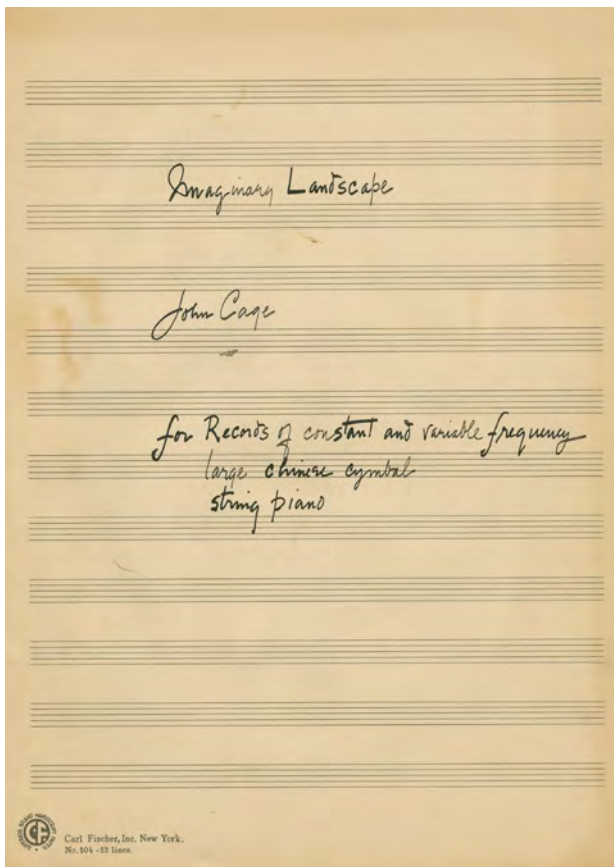 Imaginary Landscape
John Cage
for Records of constant and variable frequency
large chinese cymbal
string piano
CF
Carl Fischer, Inc. New York.
No. 104 - 12 lines.